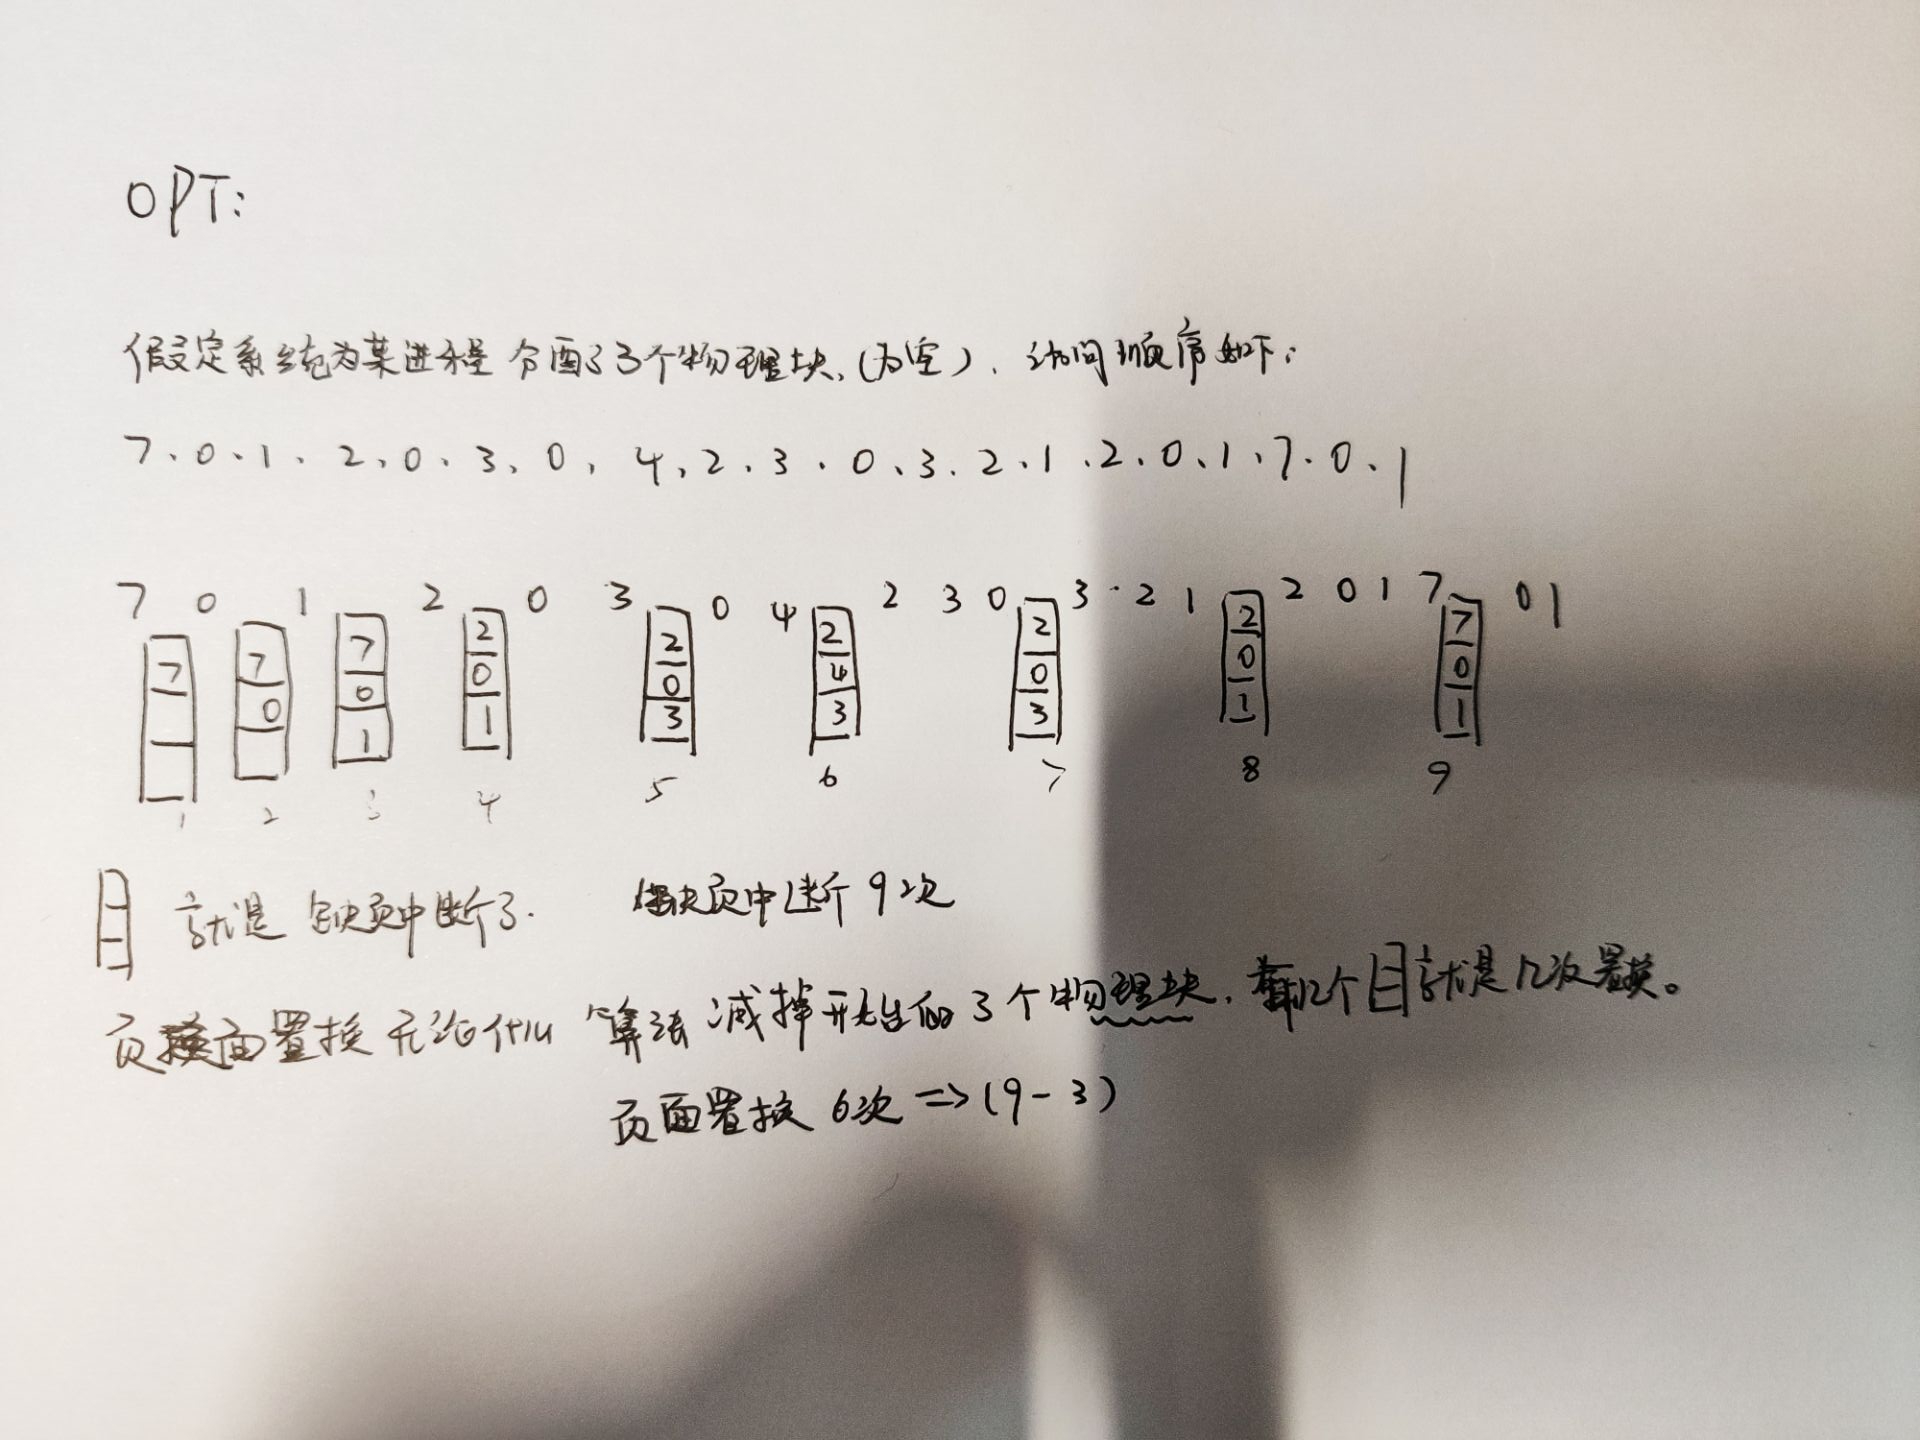 OPT:
假定系统为某进程分配了3个物理块、(为空)、访问顺序如下:
7、0、1、2、0、3、0、4、2、3、0、3、2、1、2、0、1、7、0、1
7 0 1 2 0 3 0 4 2 3 0 3 2 1 2 0 1 7 0 1
7 7 7 2 2 2 2 2 7
0 0 0 0 4 0 0 0
1 1 3 3 3 1 1
1 2 3 4 5 6 7 8 9
就是缺页中断了. 缺页中断9次
页面置换无论什么算法减掉开始的3个物理块,有几个就是几次置换。
页面置换6次=>(9-3)